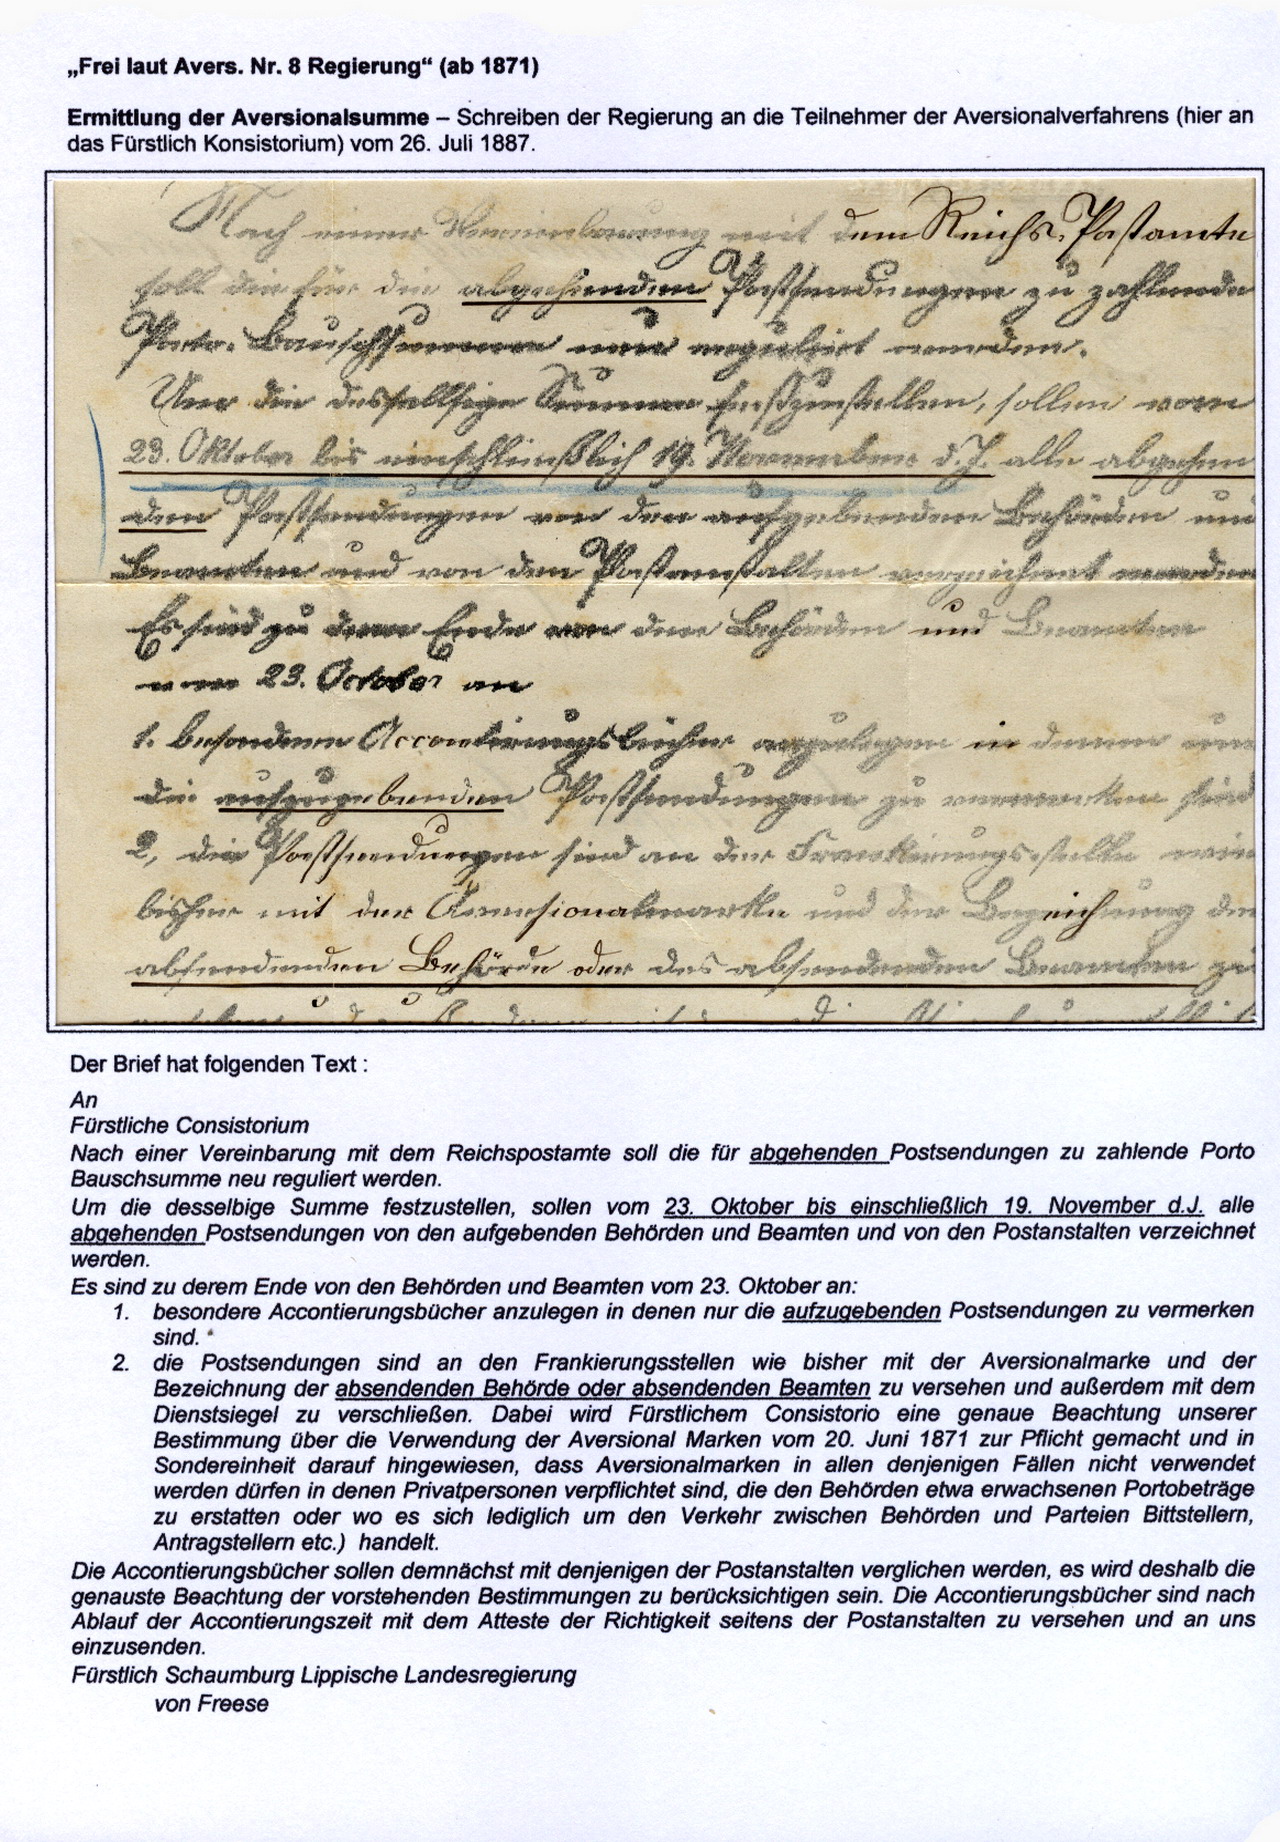 „Frei laut Avers. Nr. 8 Regierung“ (ab 1871)
Ermittlung der Aversionalsumme – Schreiben der Regierung an die Teilnehmer der Aversionalverfahrens (hier an
das Fürstlich Konsistorium) vom 26. Juli 1887.
Nach einer Vereinbarung mit dem Reichs-Postamte
soll die für die abgehenden Postsendungen zu zahlende
Porto-Bauschsumme neu regulirt werden.
Um die desfallsige Summe festzustellen, sollen vom
23. Oktober bis einschließlich 19. November d.J. alle abgehen
den Postsendungen von den aufgebenden Behörden und
Beamten und von den Postanstalten verzeichnet werden
Es sind zu dem Ende von den Behörden und Beamten
vom 23. October an
1. besondere Accontirungsbücher anzulegen in denen nur
die aufzugebenden Postsendungen zu vermerken sind
2, die Postsendungen sind an der Frankirungsstelle wie
bisher mit der Aversionalmarke und der Bezeichnung der
absendenden Behörde oder des absendenden Beamten zu
Der Brief hat folgenden Text :
An
Fürstliche Consistorium
Nach einer Vereinbarung mit dem Reichspostamte soll die für abgehenden Postsendungen zu zahlende Porto
Bauschsumme neu reguliert werden.
Um die desselbige Summe festzustellen, sollen vom 23. Oktober bis einschließlich 19. November d.J. alle
abgehenden Postsendungen von den aufgebenden Behörden und Beamten und von den Postanstalten verzeichnet
werden.
Es sind zu derem Ende von den Behörden und Beamten vom 23. Oktober an:
1. besondere Accontierungsbücher anzulegen in denen nur die aufzugebenden Postsendungen zu vermerken
sind.
2. die Postsendungen sind an den Frankierungsstellen wie bisher mit der Aversionalmarke und der
Bezeichnung der absendenden Behörde oder absendenden Beamten zu versehen und außerdem mit dem
Dienstsiegel zu verschließen. Dabei wird Fürstlichem Consistorio eine genaue Beachtung unserer
Bestimmung über die Verwendung der Aversional Marken vom 20. Juni 1871 zur Pflicht gemacht und in
Sondereinheit darauf hingewiesen, dass Aversionalmarken in allen denjenigen Fällen nicht verwendet
werden dürfen in denen Privatpersonen verpflichtet sind, die den Behörden etwa erwachsenen Portobeträge
zu erstatten oder wo es sich lediglich um den Verkehr zwischen Behörden und Parteien Bittstellern,
Antragstellern etc.) handelt.
Die Accontierungsbücher sollen demnächst mit denjenigen der Postanstalten verglichen werden, es wird deshalb die
genauste Beachtung der vorstehenden Bestimmungen zu berücksichtigen sein. Die Accontierungsbücher sind nach
Ablauf der Accontierungszeit mit dem Atteste der Richtigkeit seitens der Postanstalten zu versehen und an uns
einzusenden.
Fürstlich Schaumburg Lippische Landesregierung
von Freese